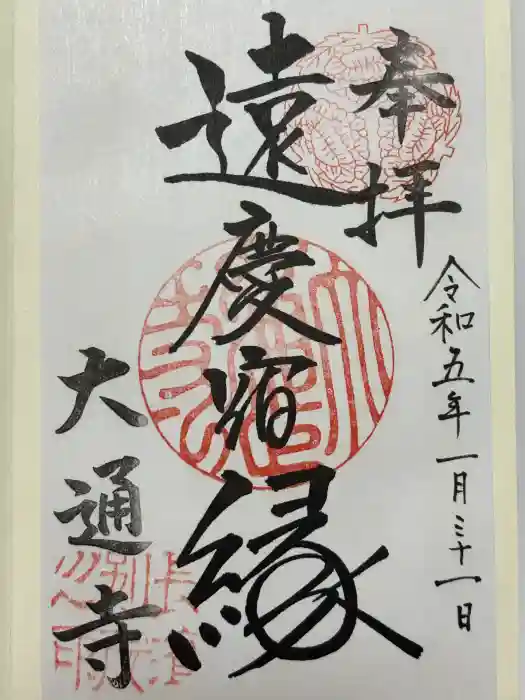 奉拝
令和五年一月三十一日
遠慶宿縁
大通寺
長濱
別院